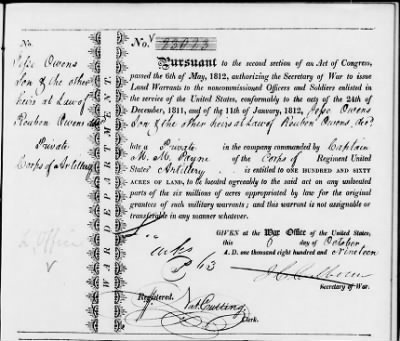 No.
Jesse Owens
Son & the other
heirs at Law of
Reuben Owens
Private
Corps of Artillery
WAR DEPARTMENT.
No.
PURSUANT to the second section of an Act of Congress,
passed the 6th of May, 1812, authorizing the Secretary of War to issue
Land Warrants to the noncommissioned Officers and Soldiers enlisted
in the service of the United States, conformably to the acts of the 24th of
December, 1811, and of the 11th of January, 1812, Jesse Owens
Son & the other heirs at Law of Reuben Owens, decd.
late a Private in the company commanded by Captain
M. M. Payne of the Corps of Regiment United
States Artillery is entitled to ONE HUNDRED AND SIXTY
ACRES OF LAND, to be located agreeably to the said act on any unlocated
parts of the six millions of acres appropriated by law for the original
grantees of such military warrants; and this warrant is not assignable or
transferable in any manner whatever.
GIVEN at the War Office of the United States,
this 6 day of October
A. D. one thousand eight hundred and Nineteen
J. C. Calhoun
Secretary of War.
Registered.
Nat Cutting
Clerk.
L. Office